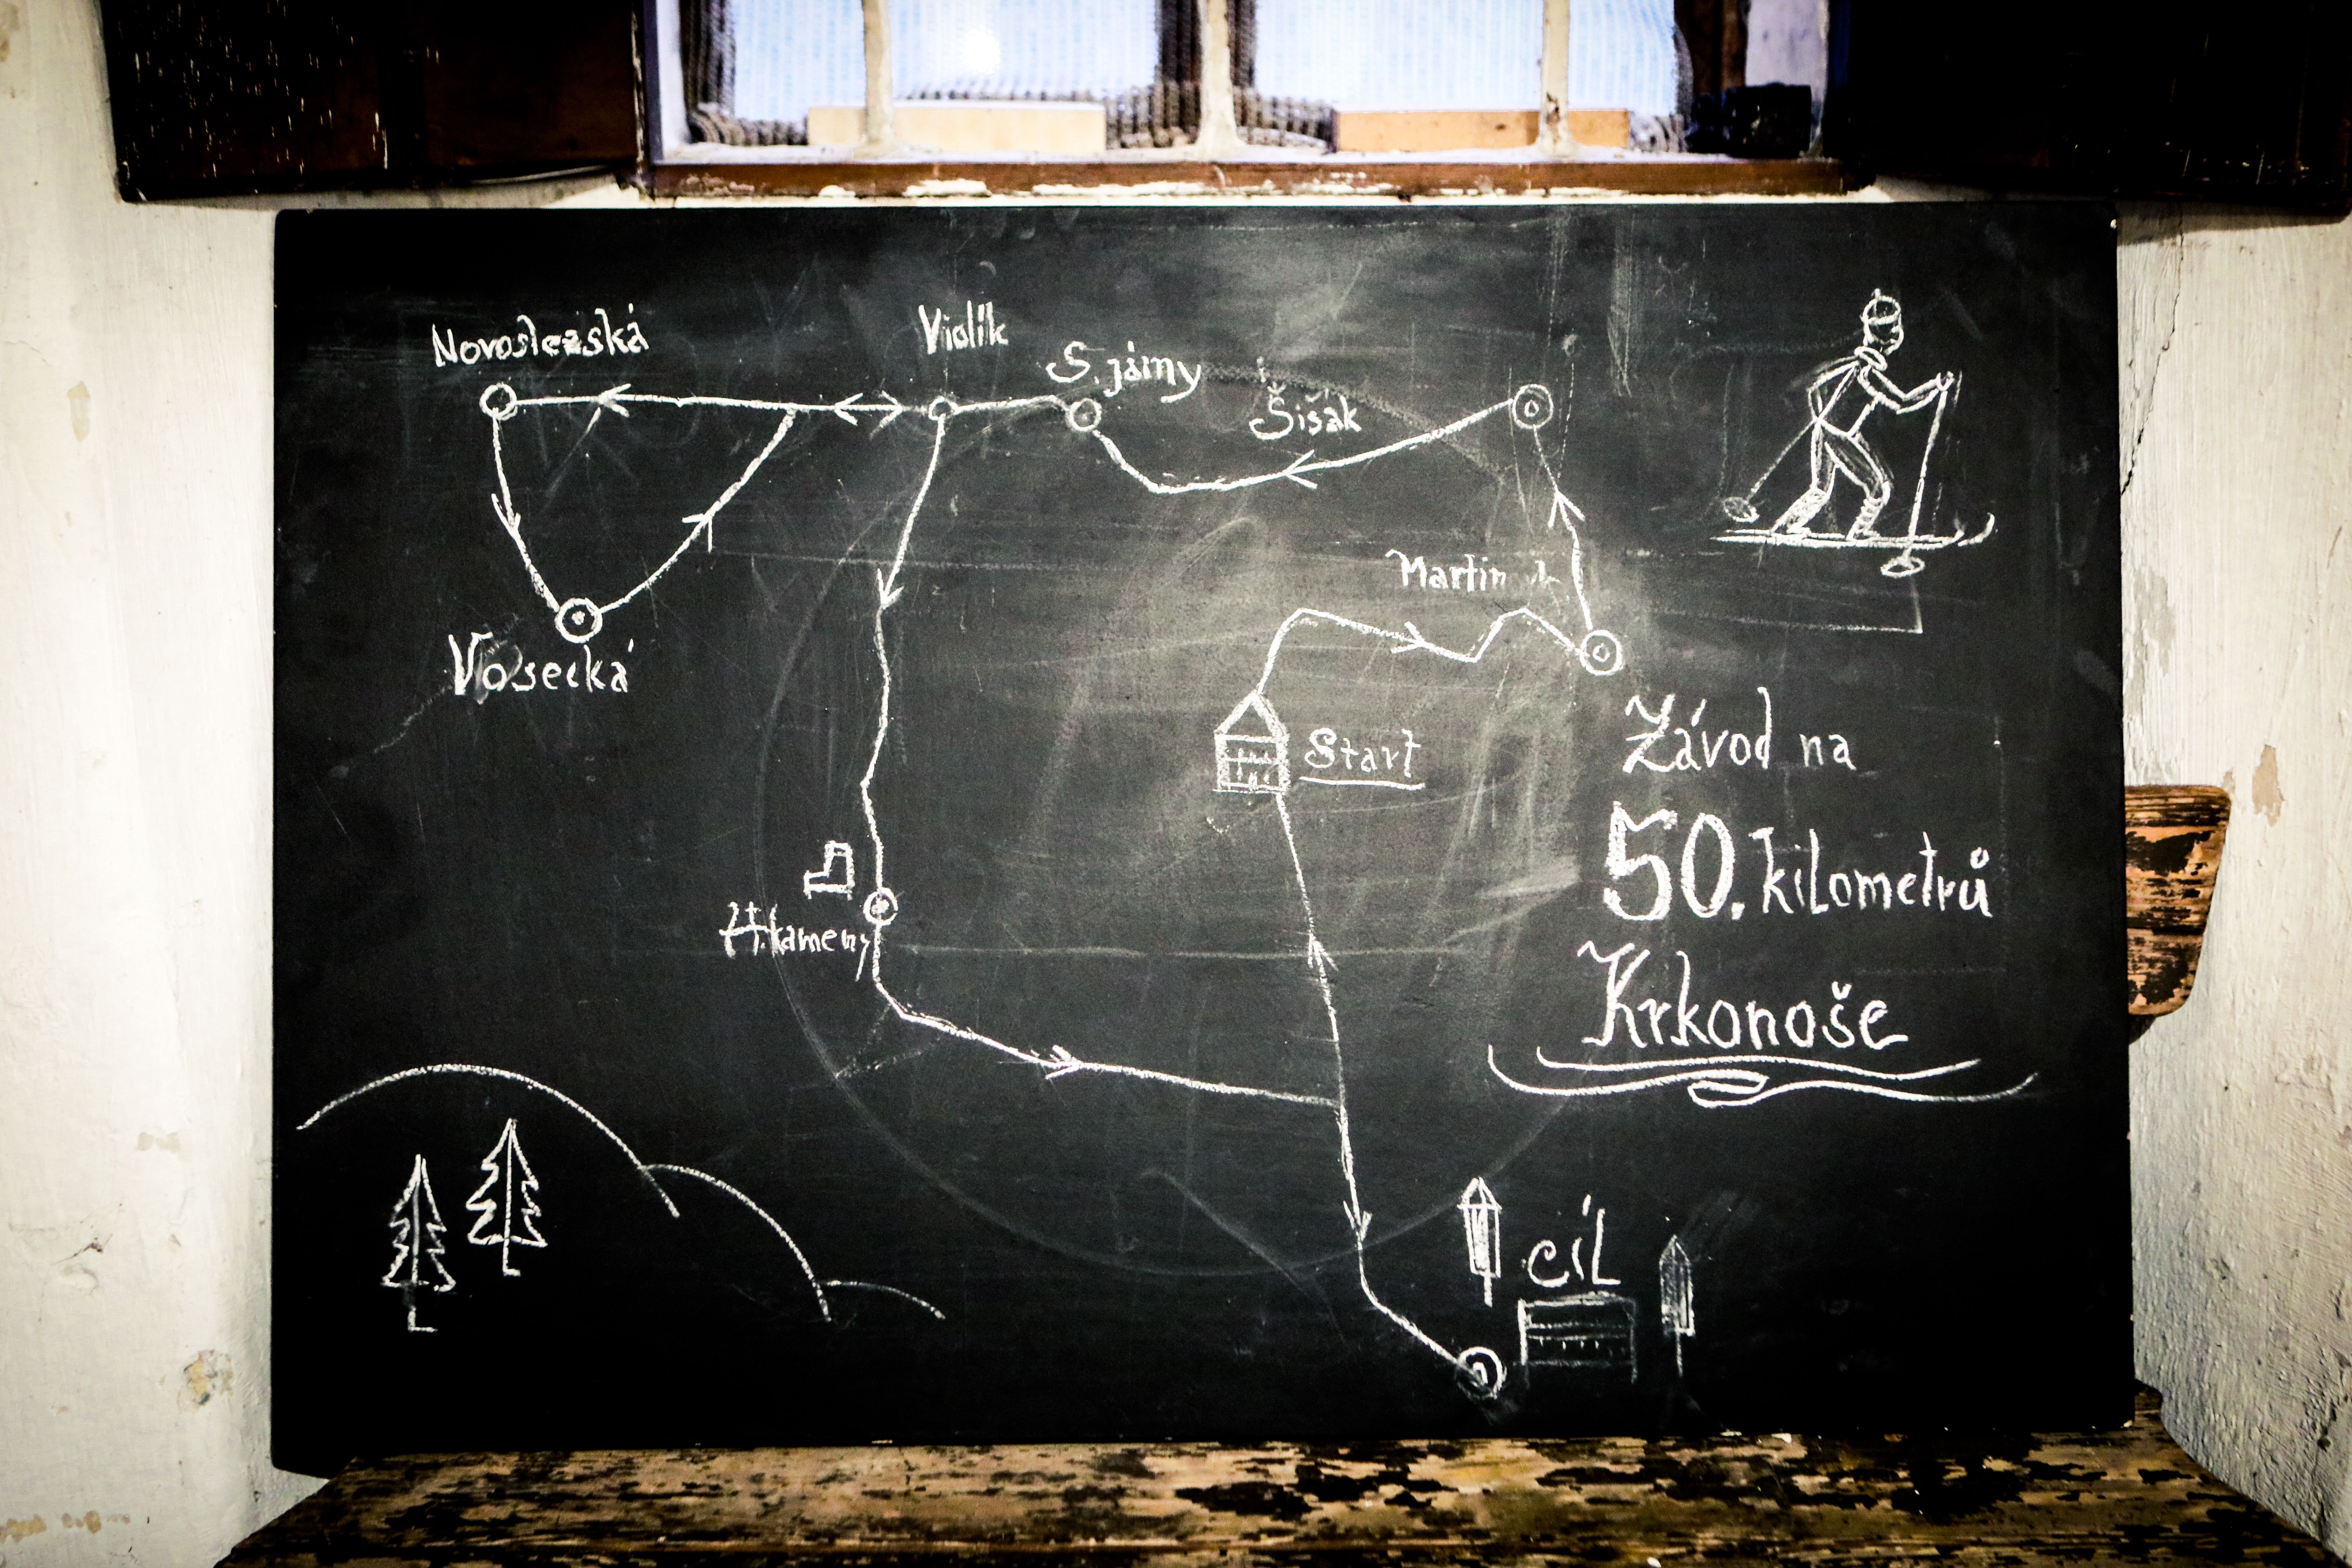 Novoslezská
Violík
S. jámy
Šišák
Vosecká
Start
H. kameny
Závod na
50. kilometrů
Krkonoše
cíL